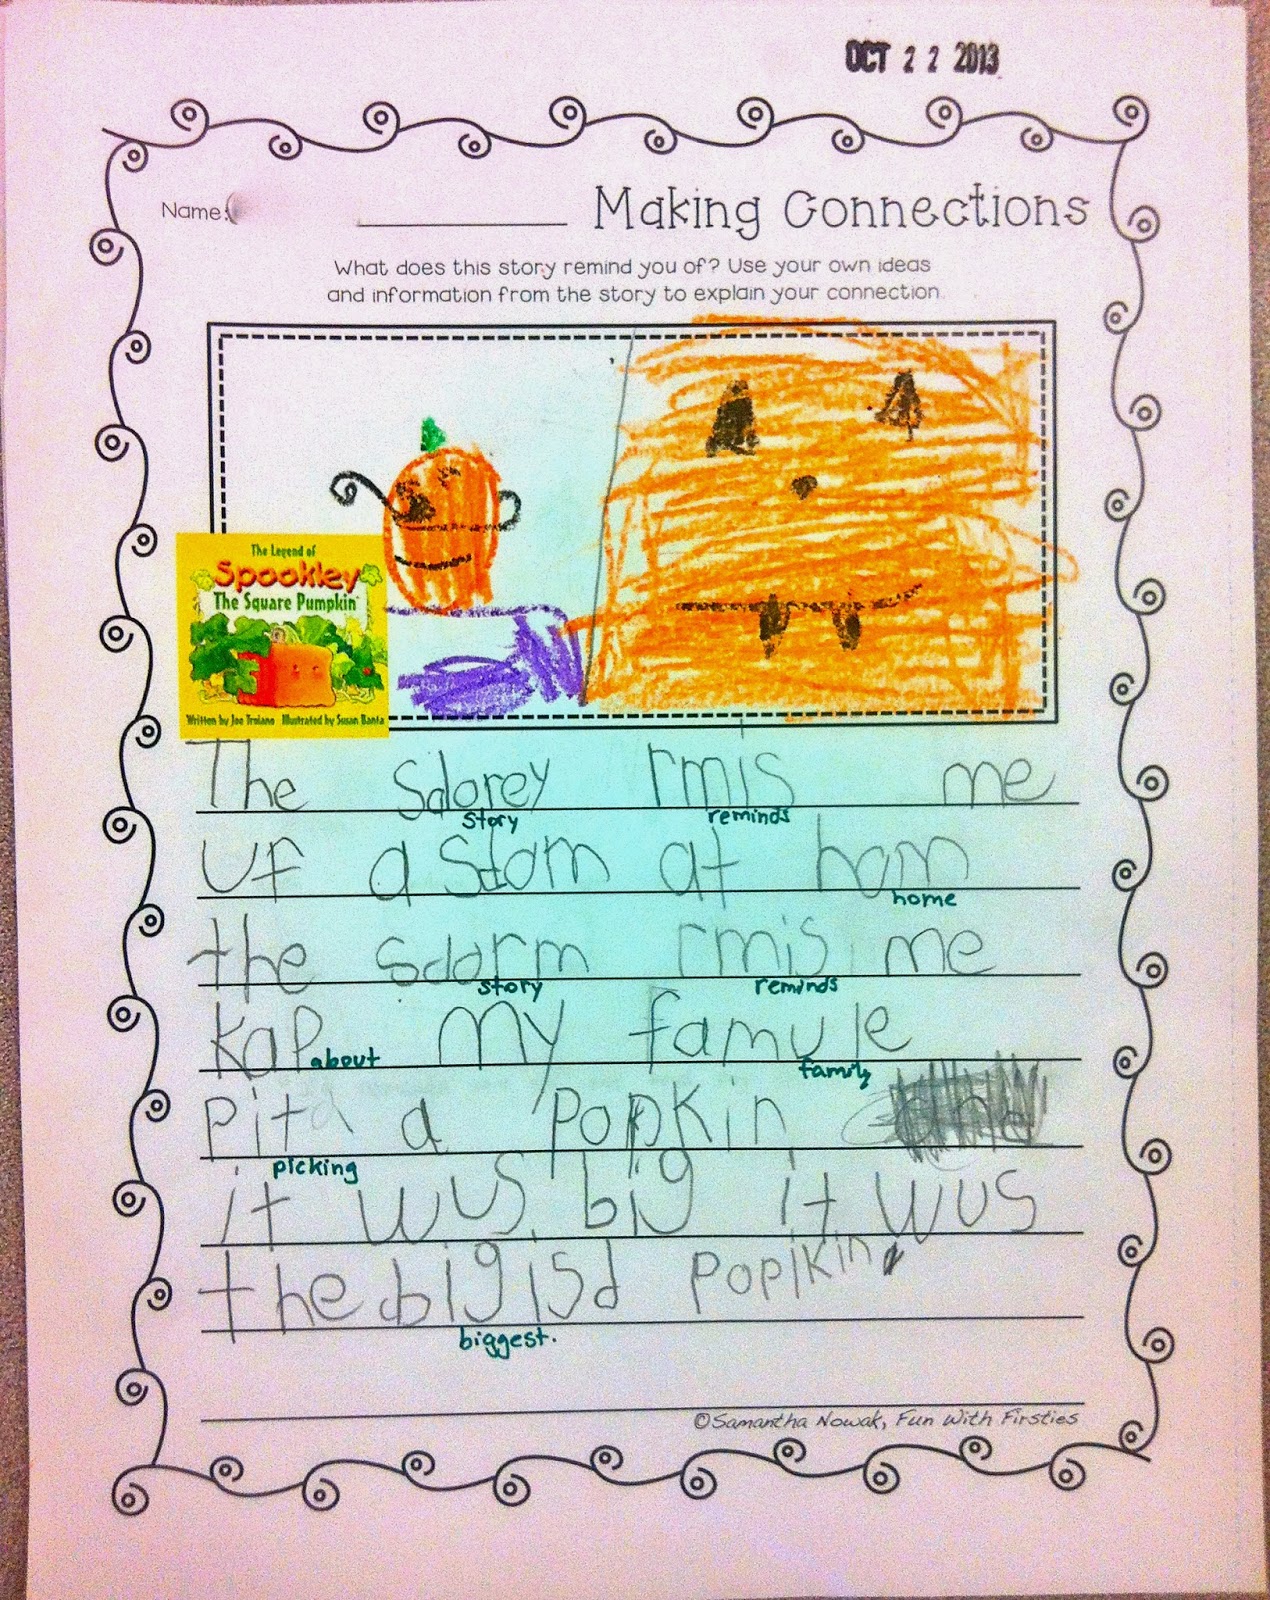 OCT 22 2013
Name: Making Connections
What does this story remind you of? Use your own ideas
and information from the story to explain your connection.
The Legend of
Spookley
The Square Pumpkin
Written by Joe Troiano Illustrated by Susan Banta
The Sdorey rmis me
story reminds
uf a Sdom at hom
home
the Sdorm rmis me
story reminds
kap my famule
about family
pit a popkin
picking
it wus big it wus
the bigisd popikin
biggest.
©Samantha Nowak, Fun With Firsties